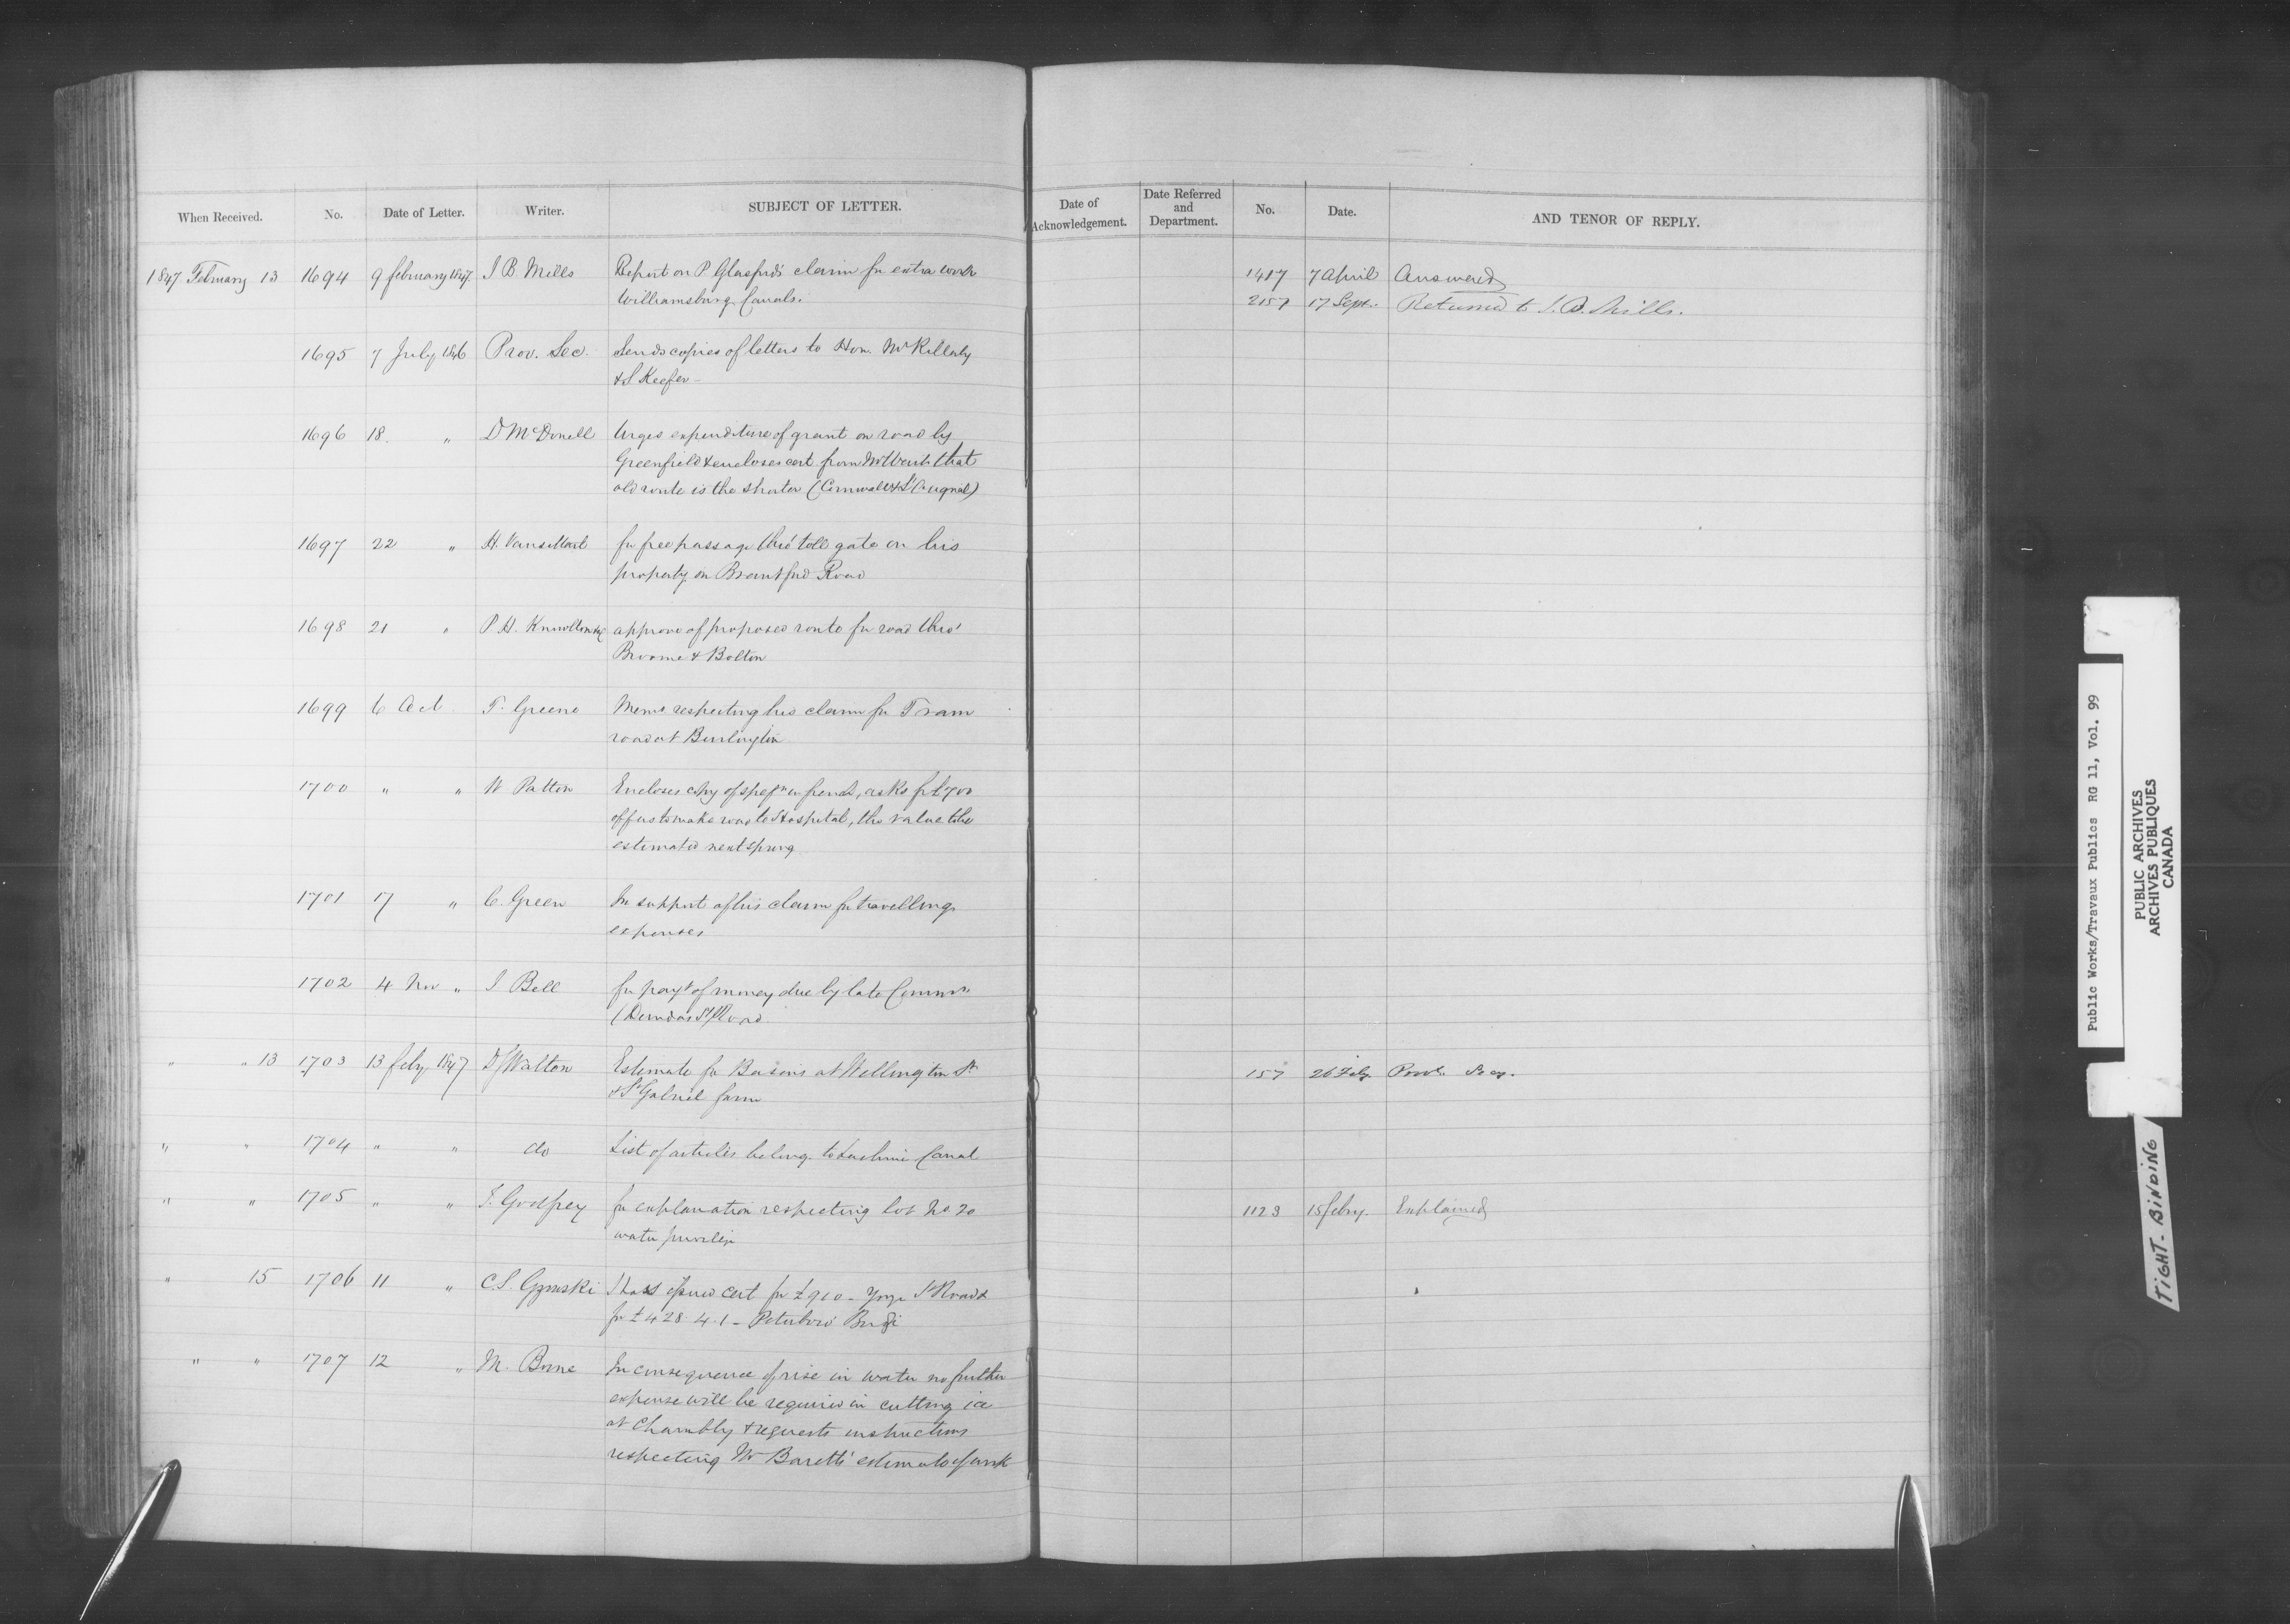 When Received. No. Date of Letter. Writer. SUBJECT OF LETTER.
Date of Acknowledgement. Date Referred and Department. No. Date. AND TENOR OF REPLY.
1847 February 13 1694 9 february 1847. J B Mills Report on P. Glasford's claim for extra work 1417 7 April Answered
Williamsburg Canals. 2157 17 Sept. Returned to J. B. Mills.
1695 7 July 1846 Prov. Sec. Sends copies of letters to Hon. Mr Killaly
& S Keefer
1696 18 " D McDonell Urges expenditure of grant on road by
Greenfield & encloses cert from that
old route is the shorter (Cornwall & L'Orignal)
1697 22 " H. Vansittart for free passage thro' toll gate on his
property on Brantford Road
1698 21 " P. H. Knowlton &c approve of proposed route for road thro'
Broome & Bolton
1699 6 Oct T. Greene Memo respecting his claim for Tram
road at Burlington
1700 " " W Patton Encloses copy of in french, asks for £700
offers to make road to Hospital, the value to be
estimated next spring
1701 17 " C. Green In support of his claim for travelling
expenses
1702 4 Nov " J Bell for payt of money due by late Commrs
(Dundas St Road
" " 13 1703 13 feby 1847 D/Walton Estimate for Basins at Wellington St 157 26 Feby Provl. Secy.
& St Gabriel farm
" " 1704 " " do List of articles belong. to Lachine Canal
" " 1705 " " Godfrey for explanation respecting lot No 20 1123 15 feby. Explained
water privilege
" 15 1706 11 " C. S. Gzowski cert for £900 - Yonge St Road &
for £428. 4. 1 - Peterboro' Bridge
" " 1707 12 " M. Borne In consequence of rise in water no further
expense will be required in cutting ice
at Chambly & requests instructions
respecting Mr Barett's estimate of work
Public Works/Travaux Publics RG 11, Vol. 99
PUBLIC ARCHIVES
ARCHIVES PUBLIQUES
CANADA
TIGHT-BINDING